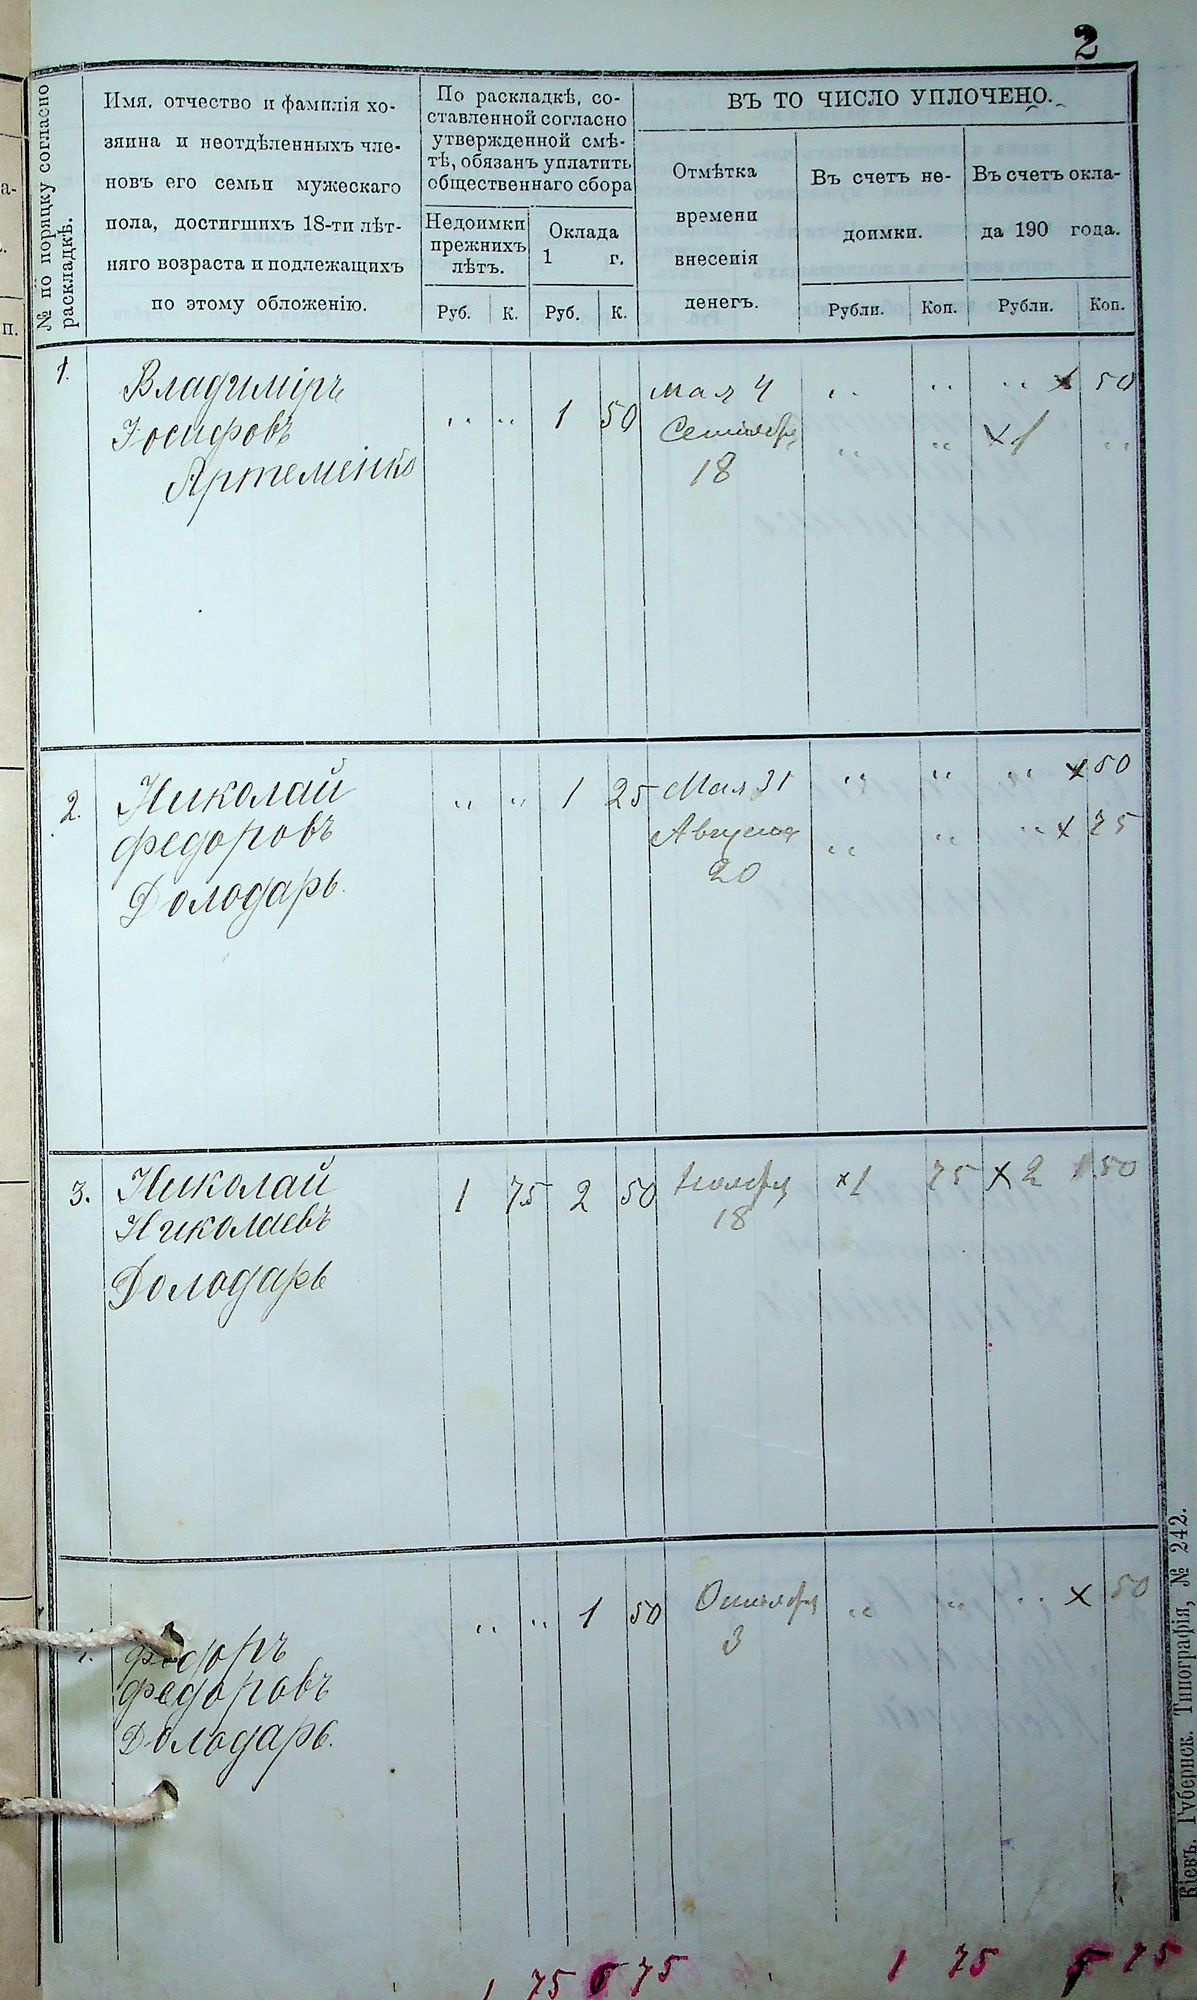 2
№ по порядку согласно
раскладкѣ.
Имя, отчество и фамилія хо-
зяина и неотдѣленныхъ чле-
новъ его семьи мужескаго
пола, достигшихъ 18-ти лѣт-
няго возраста и подлежащихъ
по этому обложенію.
По раскладкѣ, со-
ставленной согласно
утвержденной смѣ-
тѣ, обязанъ уплатить
общественнаго сбора
Недоимки
прежнихъ
лѣтъ.
Оклада
1 г.
Руб. К. Руб. К.
ВЪ ТО ЧИСЛО УПЛОЧЕНО.
Отмѣтка
времени
внесенія
денегъ.
Въ счетъ не-
доимки.
Въ счетъ окла-
да 190 года.
Рубли. Коп. Рубли. Коп.
1. Владиміръ „ „ 1 50 мая 4 „ „ „ х 50
Іосифовъ Сентября „ „ х 1 „
Артеменко 18
2. Николай „ „ 1 25 Мая 31 „ „ „ х 50
Федоровъ Августа „ „ „ х 75
Володарь. 20
3. Николай 1 75 2 50 Ноября х 1 75 х 2 50
Николаевъ 18
Володарь
4. Федоръ „ „ 1 50 Октября „ „ „ х 50
Федоровъ 3
Володарь.
1 75 6 75 1 75 5 75
Кіевъ. Губернск. Типографія, № 242.
а-
п.